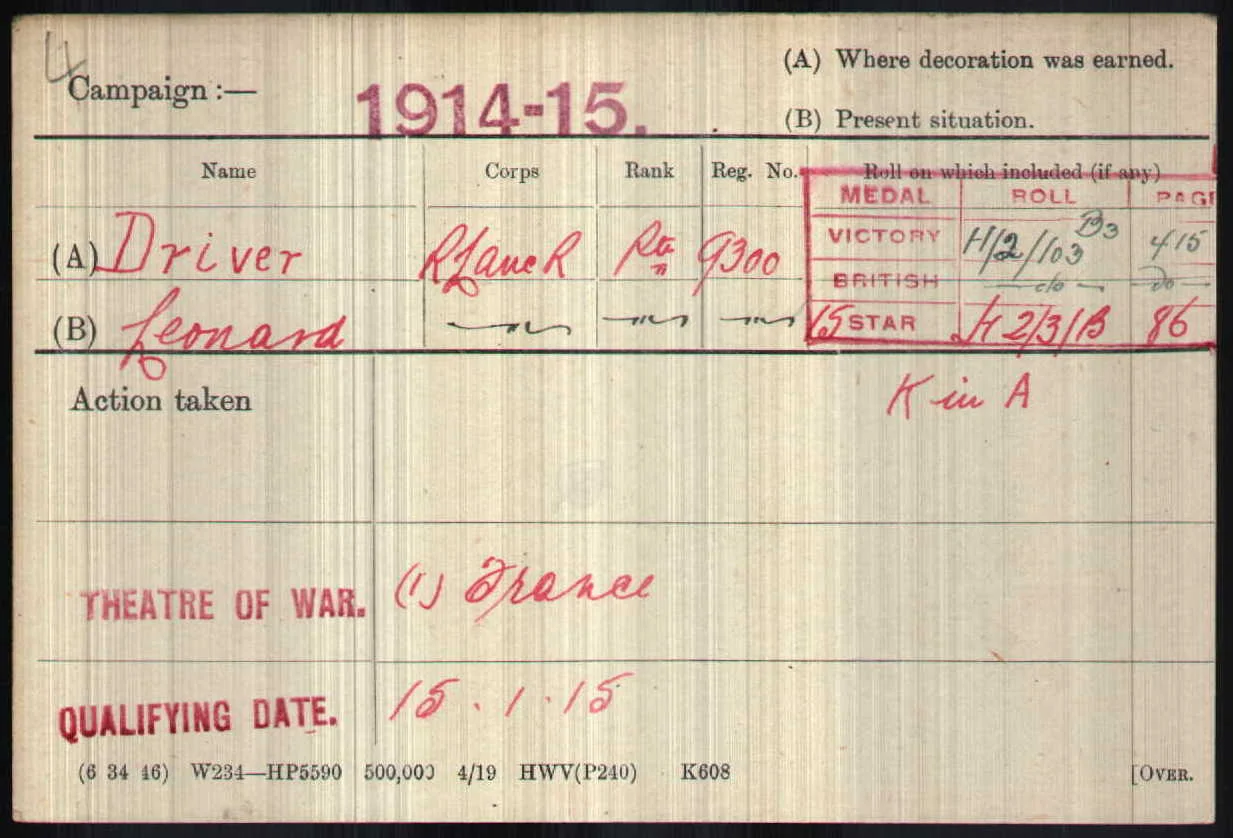 4
(A) Where decoration was earned.
Campaign :— 1914-15.
(B) Present situation.
Name Corps Rank Reg. No. Roll on which included (if any)
MEDAL ROLL PAGE
(A) Driver R Lanc R Pte 9300 VICTORY H/2/103 B3 415
BRITISH —do— —do—
(B) Leonard —"— —"— —"— 15 STAR H 2/3/B 86
Action taken K in A
THEATRE OF WAR. (1) France
QUALIFYING DATE. 15.1.15
(6 34 46) W234—HP5590 500,000 4/19 HWV(P240) K608 [OVER.